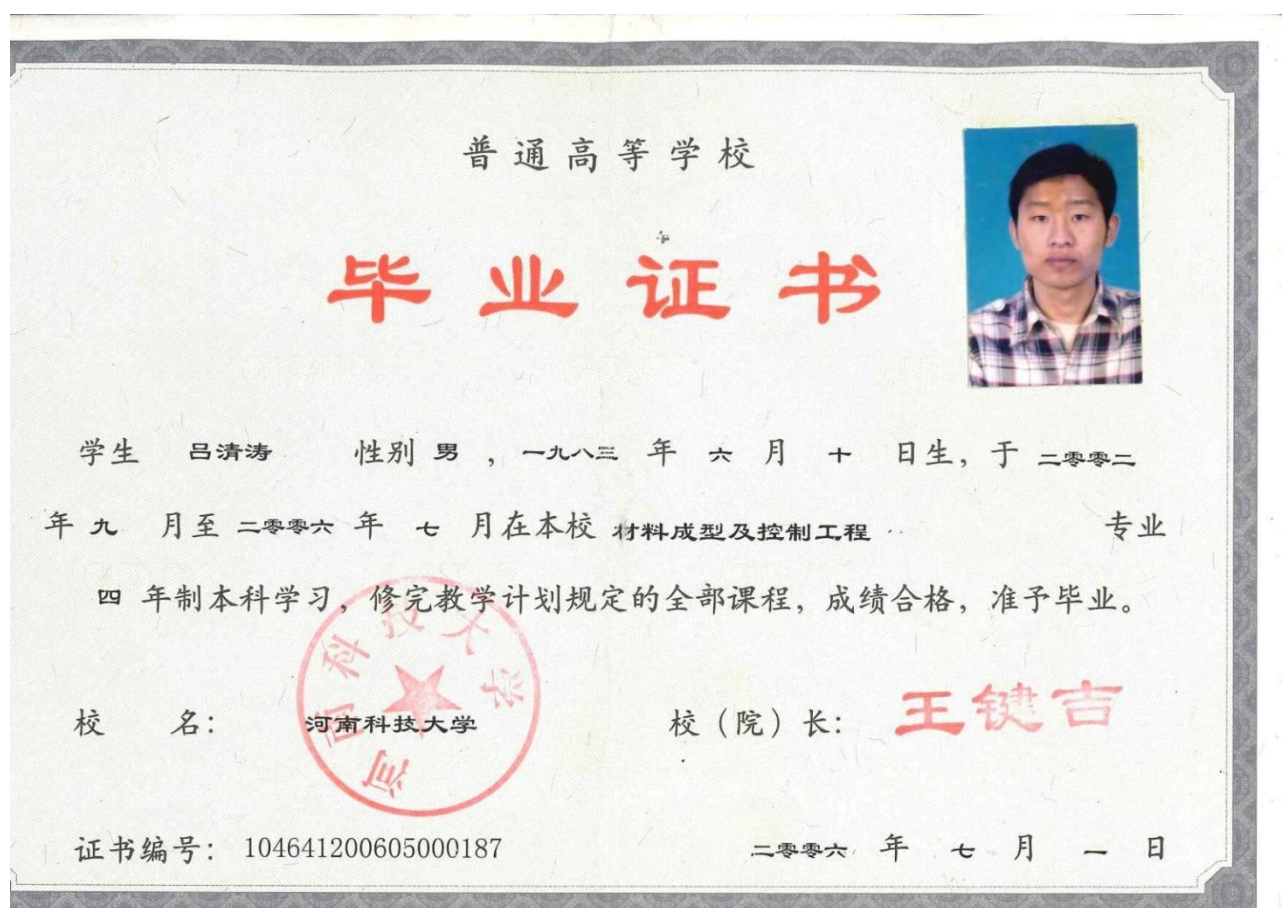 普通高等学校
毕业证书
学生 吕清涛 性别 男 ，一九八三 年 六 月 十 日生，于 二零零二
年 九 月至 二零零六 年 七 月在本校 材料成型及控制工程 专业
四 年制本科学习，修完教学计划规定的全部课程，成绩合格，准予毕业。
河南科技大学
校 名： 河南科技大学 校（院）长： 王键吉
证书编号： 104641200605000187 二零零六 年 七 月 一 日